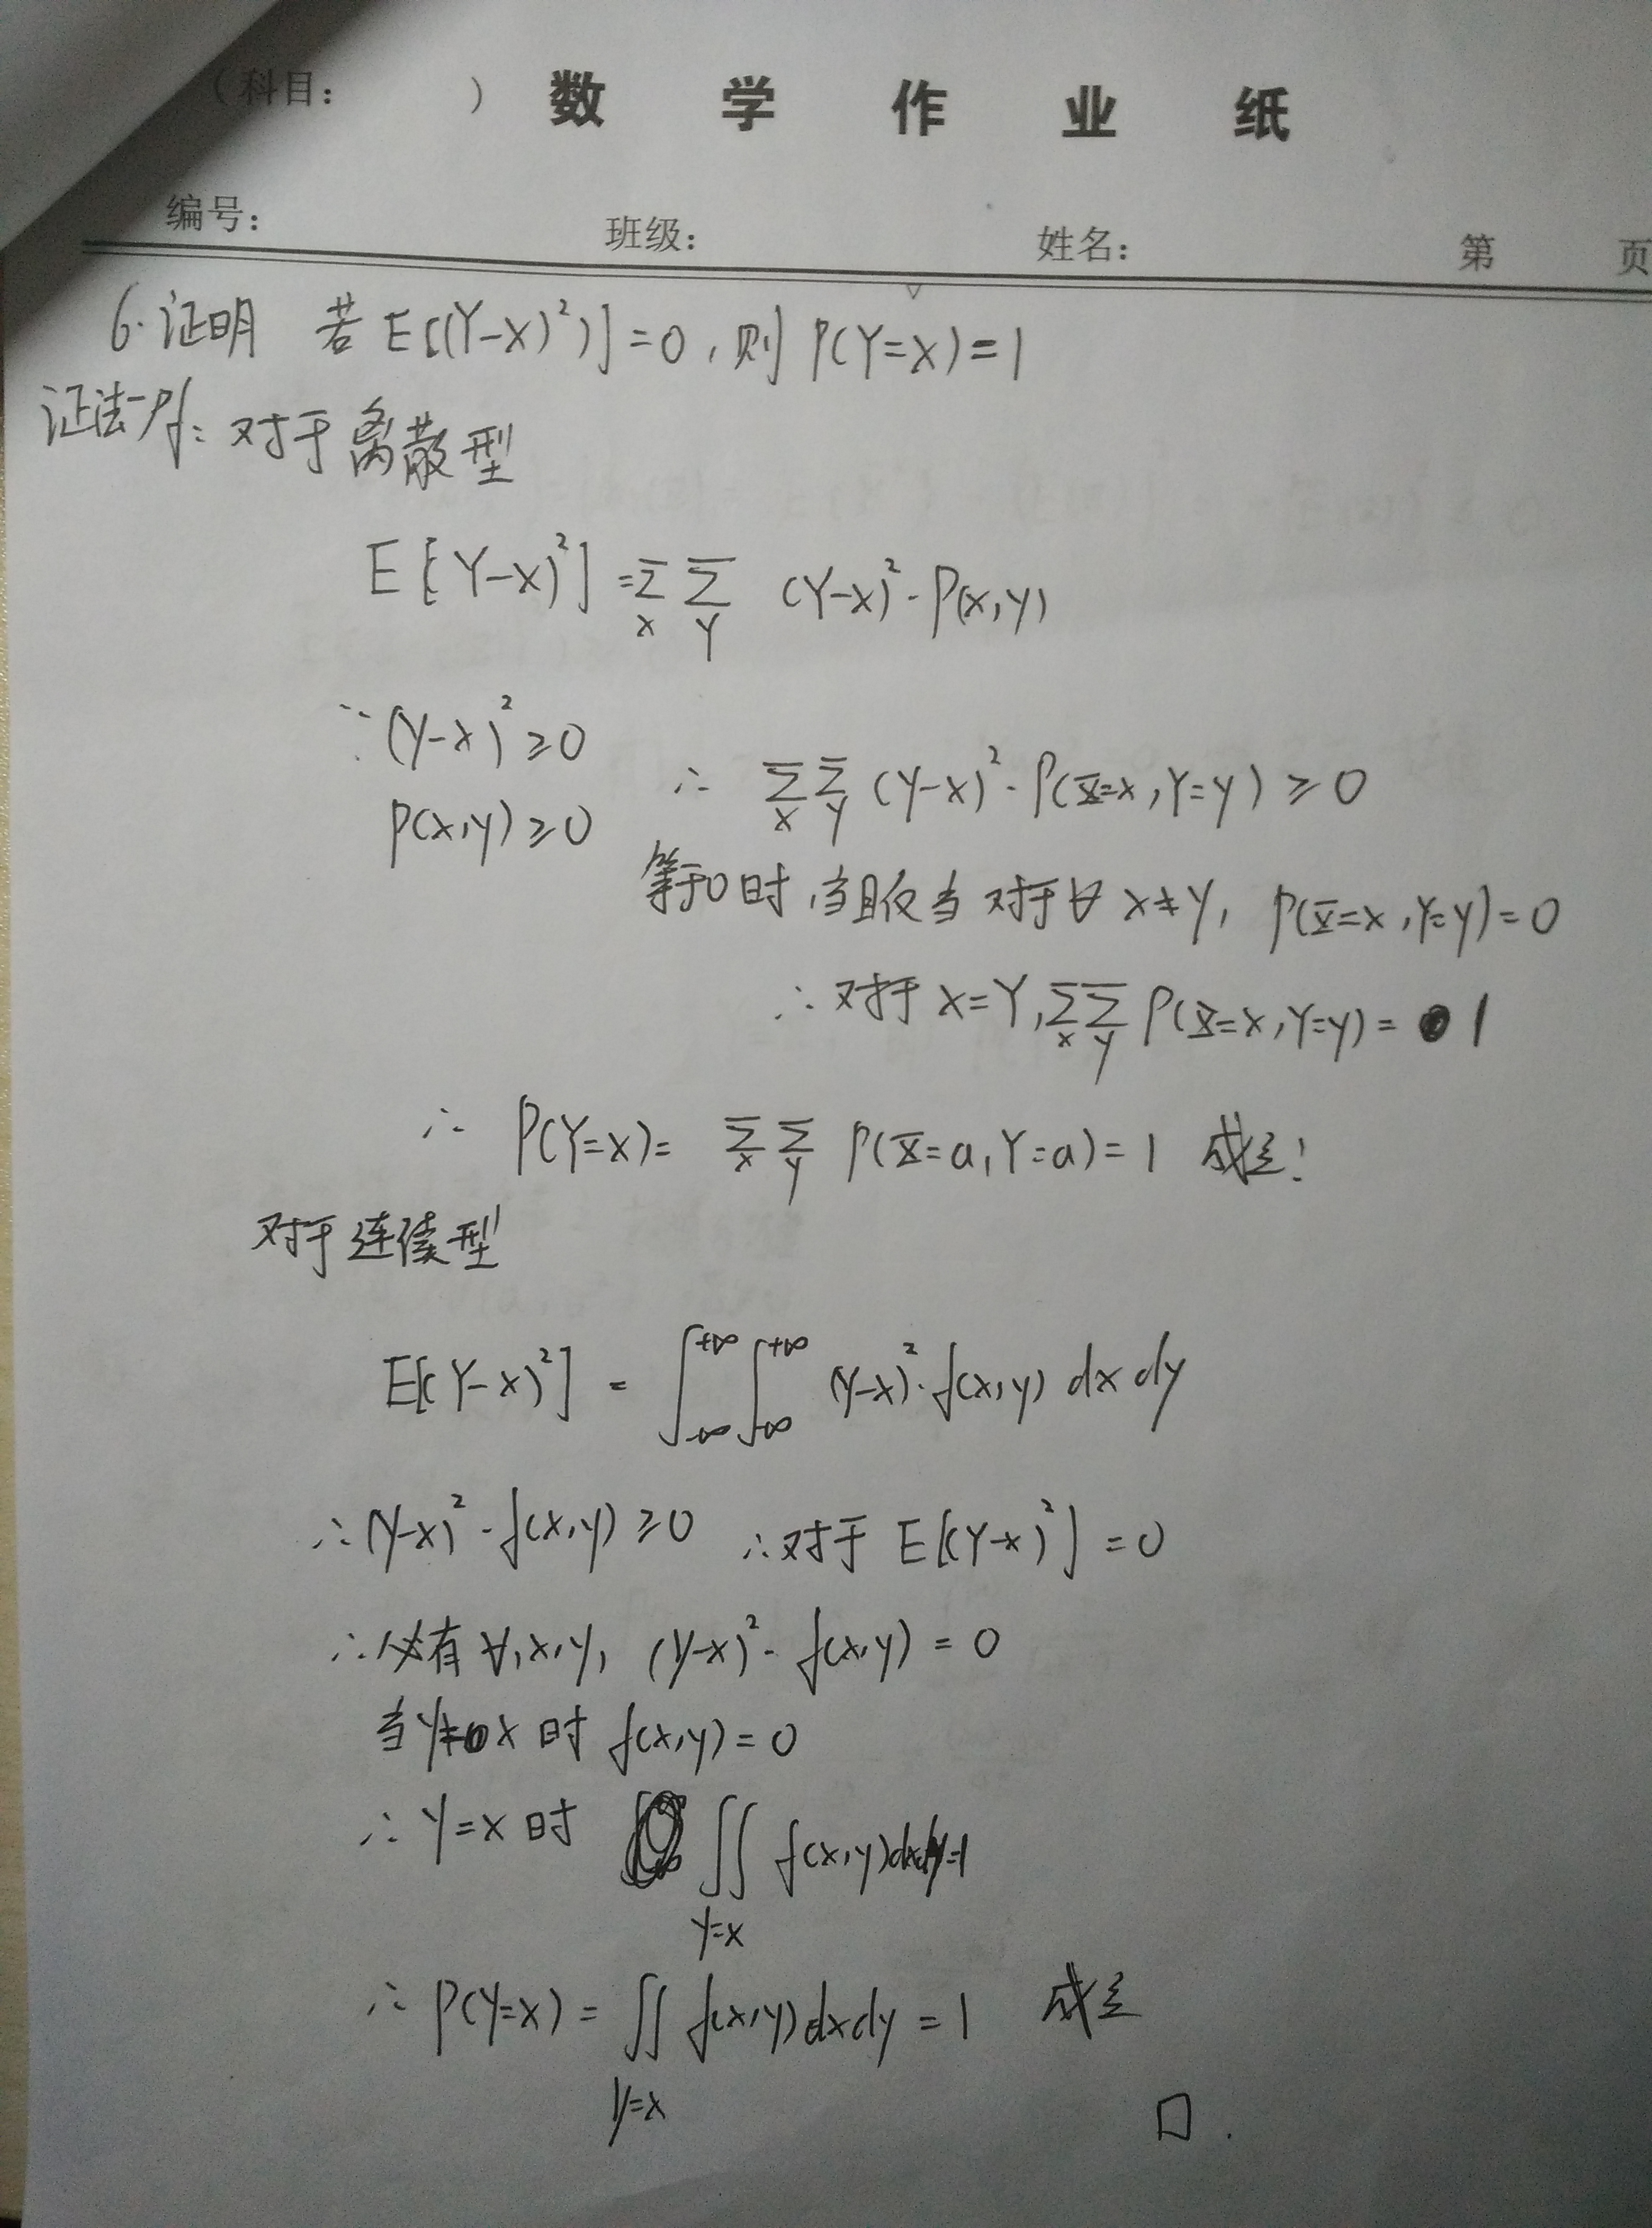 （科目： ） 数 学 作 业 纸
编号： 班级： 姓名： 第 页
6. 证明 若 E[(Y-X)²)]=0, 则 P(Y=X)=1
证法一Pf: 对于离散型
E[Y-X)²] = Σ_x Σ_Y (Y-X)²·P(x,y)
∵ (Y-X)² ≥ 0
P(x,y) ≥ 0 ∴ Σ_x Σ_y (y-x)²·P(X=x,Y=y) ≥ 0
等于0时,当且仅当 对于∀ x≠y, P(X=x,Y=y)=0
∴ 对于 X=Y, Σ_x Σ_y P(X=x,Y=y) = 1
∴ P(Y=X) = Σ_x Σ_y P(X=a,Y=a) = 1 成立!
对于连续型
E[(Y-X)²] = ∫_{-∞}^{+∞} ∫_{-∞}^{+∞} (y-x)²·f(x,y) dx dy
∴ (y-x)²·f(x,y) ≥ 0 ∴ 对于 E[(Y-X)²] = 0
∴ 必有 ∀,x,y, (y-x)²·f(x,y) = 0
当 y≠x 时 f(x,y) = 0
∴ Y=X 时 ∬_{y=x} f(x,y)dxdy=1
∴ P(Y=X) = ∬_{y=x} f(x,y)dxdy = 1 成立
□.